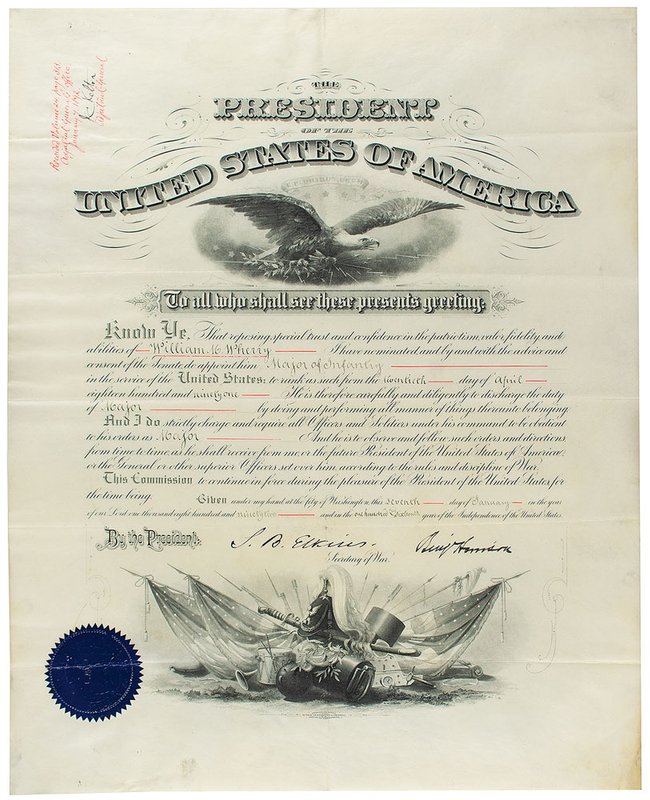 Adjutant General's Office
J. C. Kelton
Adjutant General
THE
PRESIDENT
OF THE
UNITED STATES OF AMERICA
To all who shall see these presents greeting:
Know Ye, That reposing special trust and confidence in the patriotism, valor, fidelity, and
abilities of William M. Wherry I have nominated, and by and with the advice and
consent of the Senate do appoint him Major of Infantry
in the service of the United States: to rank as such from the twentieth day of April
eighteen hundred and ninety one He is therefore carefully and diligently to discharge the duty
of Major by doing and performing all manner of things thereunto belonging
And I do strictly charge and require all Officers and Soldiers under his command to be obedient
to his orders as Major And he is to observe and follow such orders and directions
from time to time, as he shall receive from me, or the future President of the United States of America,
or the General or other superior Officers set over him, according to the rules and discipline of War.
This Commission to continue in force during the pleasure of the President of the United States for
the time being.
Given under my hand at the City of Washington, this seventh day of January in the year
of our Lord one thousand eight hundred and ninety two and in the one hundred & sixteenth year of the Independence of the United States.
By the President:
S. B. Elkins.
Benj Harrison
Secretary of War.